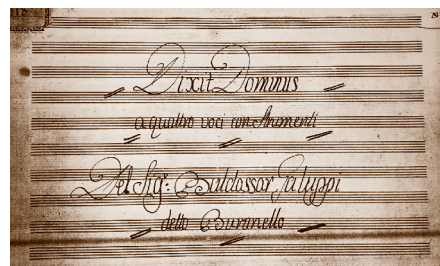 Dixit Dominus
a quattro voci con Stromenti
Del Sig.r Baldassar Galuppi
detto Buranello